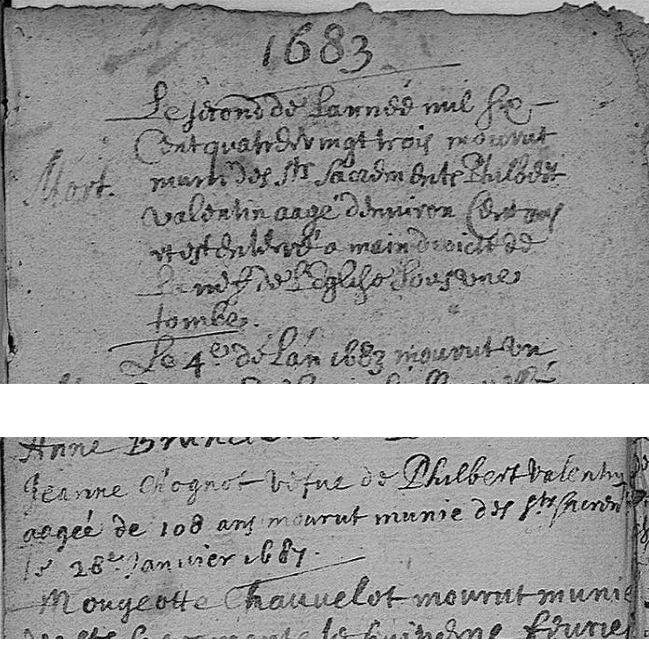 1683
Le second de Lannée mil six
Cent quatre vingt trois mourut
Mort.
muni des Sts Sacrements Philbert
valentin aagé denviron Cent ans
et est enterré a main droicte de
La nef de Leglise sous une
tombe.
Le 4e de Lan 1683 mourut un
Anne
Jeanne Chognot vefue de Philbert valentin
aagée de 108 ans mourut munie des Sts sacrem
le 28e Janvier 1687.
Mougeotte Chauvelot mourut munie
des Sts Sacrements le fevrier